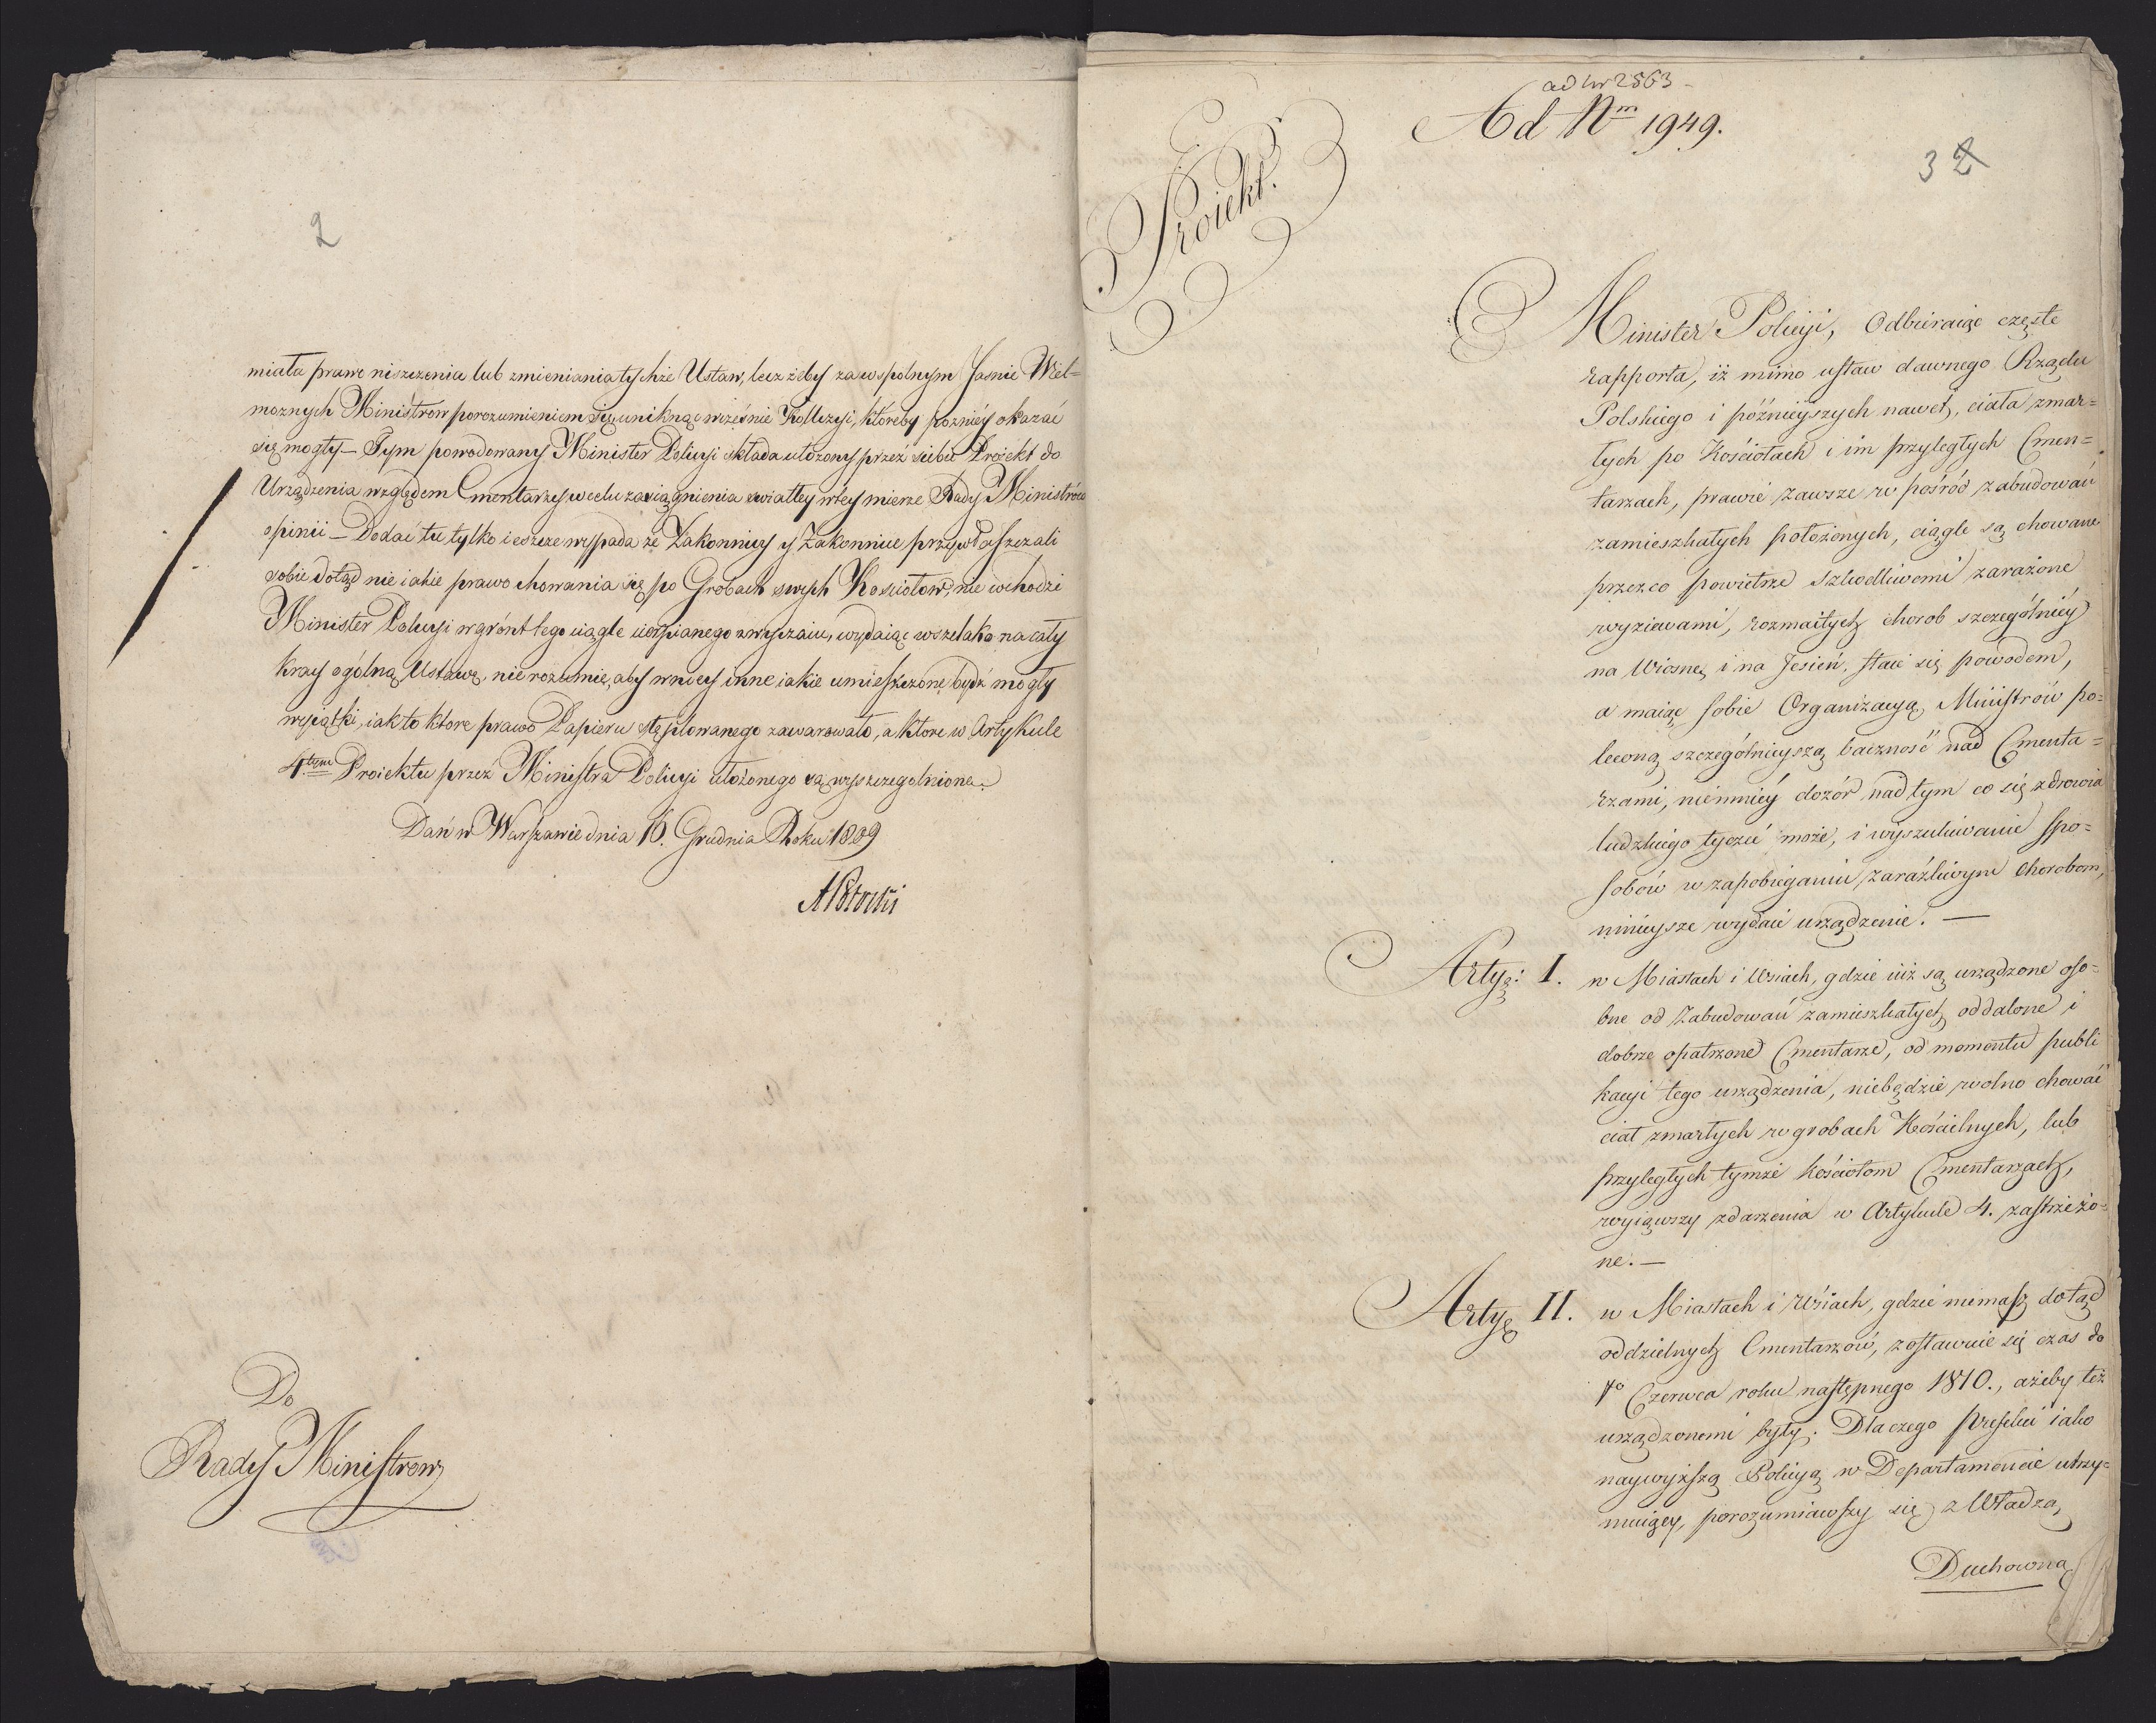 2
miała prawo niszczenia lub zmieniania tychże Ustaw, lecz żeby za wspolnym Jasnie Wiel=
moznych Ministrow porozumieniem się uniknąc wześnie Kollizyi, któreby pozniéy okazać
się mogły — Tym powodowany Minister Policyi składa ułożony przez siebie Proiekt do
Urządzenia względem Cmentarzy w celu zasiągnienia swiatłey w téy mierze Rady Ministrów
opinii — Dodać tu tylko ieszcze wypada że Zakonnicy y Zakonnice przywłaszczali
sobie dotąd nieiakie prawo chowania się po Grobach swych Kosciołow, nie wchodzi
Minister Policyi w grónt tego ciągle cierpianego zwyczaiu, wydaiąc wszelako na cały
Kray ogólną Ustawę, nie rozumie, aby w niey inne iakie umieszczone bydź mogły
wyiątki, iak to ktore prawo Papieru stęplowanego zawarowało, a ktore w Artykule
4tym Proiektu przez Ministra Policyi ułożonego są wyszczegolnione.
Dań w Warszawie dnia 16. Grudnia Roku 1809
APotocki
Do
Rady Ministrow
ad Nr 2563
Ad Nm 1949.
3 2
Proiekt.
Minister Policyi, Odbieraiąc częste
rapporta, iż mimo ustaw dawnego Rządu
Polskiego i późnieyszych nawet, ciała zmar=
łych po Kościołach i im przyległych Cmen=
tarzach, prawie zawsze w pośród zabudowań
zamieszkałych położonych, ciągle są chowane
przez co powietrze szkodliwemi zarażone
wyziewami, rozmaitych chorob szczególniéy
na Wiosnę i na Jesień, staie się powodem,
a maiąc sobie Organizacyą Ministrów po=
leconą szczególnieyszą baczność nad Cmenta=
rzami, niemniéy dozór nad tym co się zdrowia
ludzkiego tyczeć może, i wyszukiwanie spo=
sobów w zapobieganiu zaraźliwym chorobom,
ninieysze wydaie urządzenie. —
Arty: I. w Miastach i Wsiach, gdzie iuż są urządzone oso=
bne od Zabudowań zamieszkałych oddalone i
dobrze opatrzone Cmentarze, od momentu publi
kacyi tego urządzenia, niebędzie wolno chować
ciał zmarłych w grobach Kościelnych, lub
przyległych tymże Kościołom Cmentarzach,
wyiąwszy zdarzenia w Artykule 4. zastrzeżo=
ne. —
Arty II. w Miastach i Wsiach, gdzie niemasz dotąd
oddzielnych Cmentarzów, zostawuie się czas do
1o Czerwca roku następnego 1810., ażeby też
urządzonemi były. Dla czego Prefekci iako
naywyższą Policyą w Departamencie utrzy=
muiący, porozumiawszy się z Władzą
Duchowną